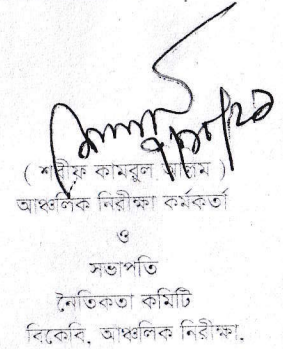 ( শরীফ কামরুল আলম )
আঞ্চলিক নিরীক্ষা কর্মকর্তা
ও
সভাপতি
নৈতিকতা কমিটি
বিকেবি, আঞ্চলিক নিরীক্ষা,